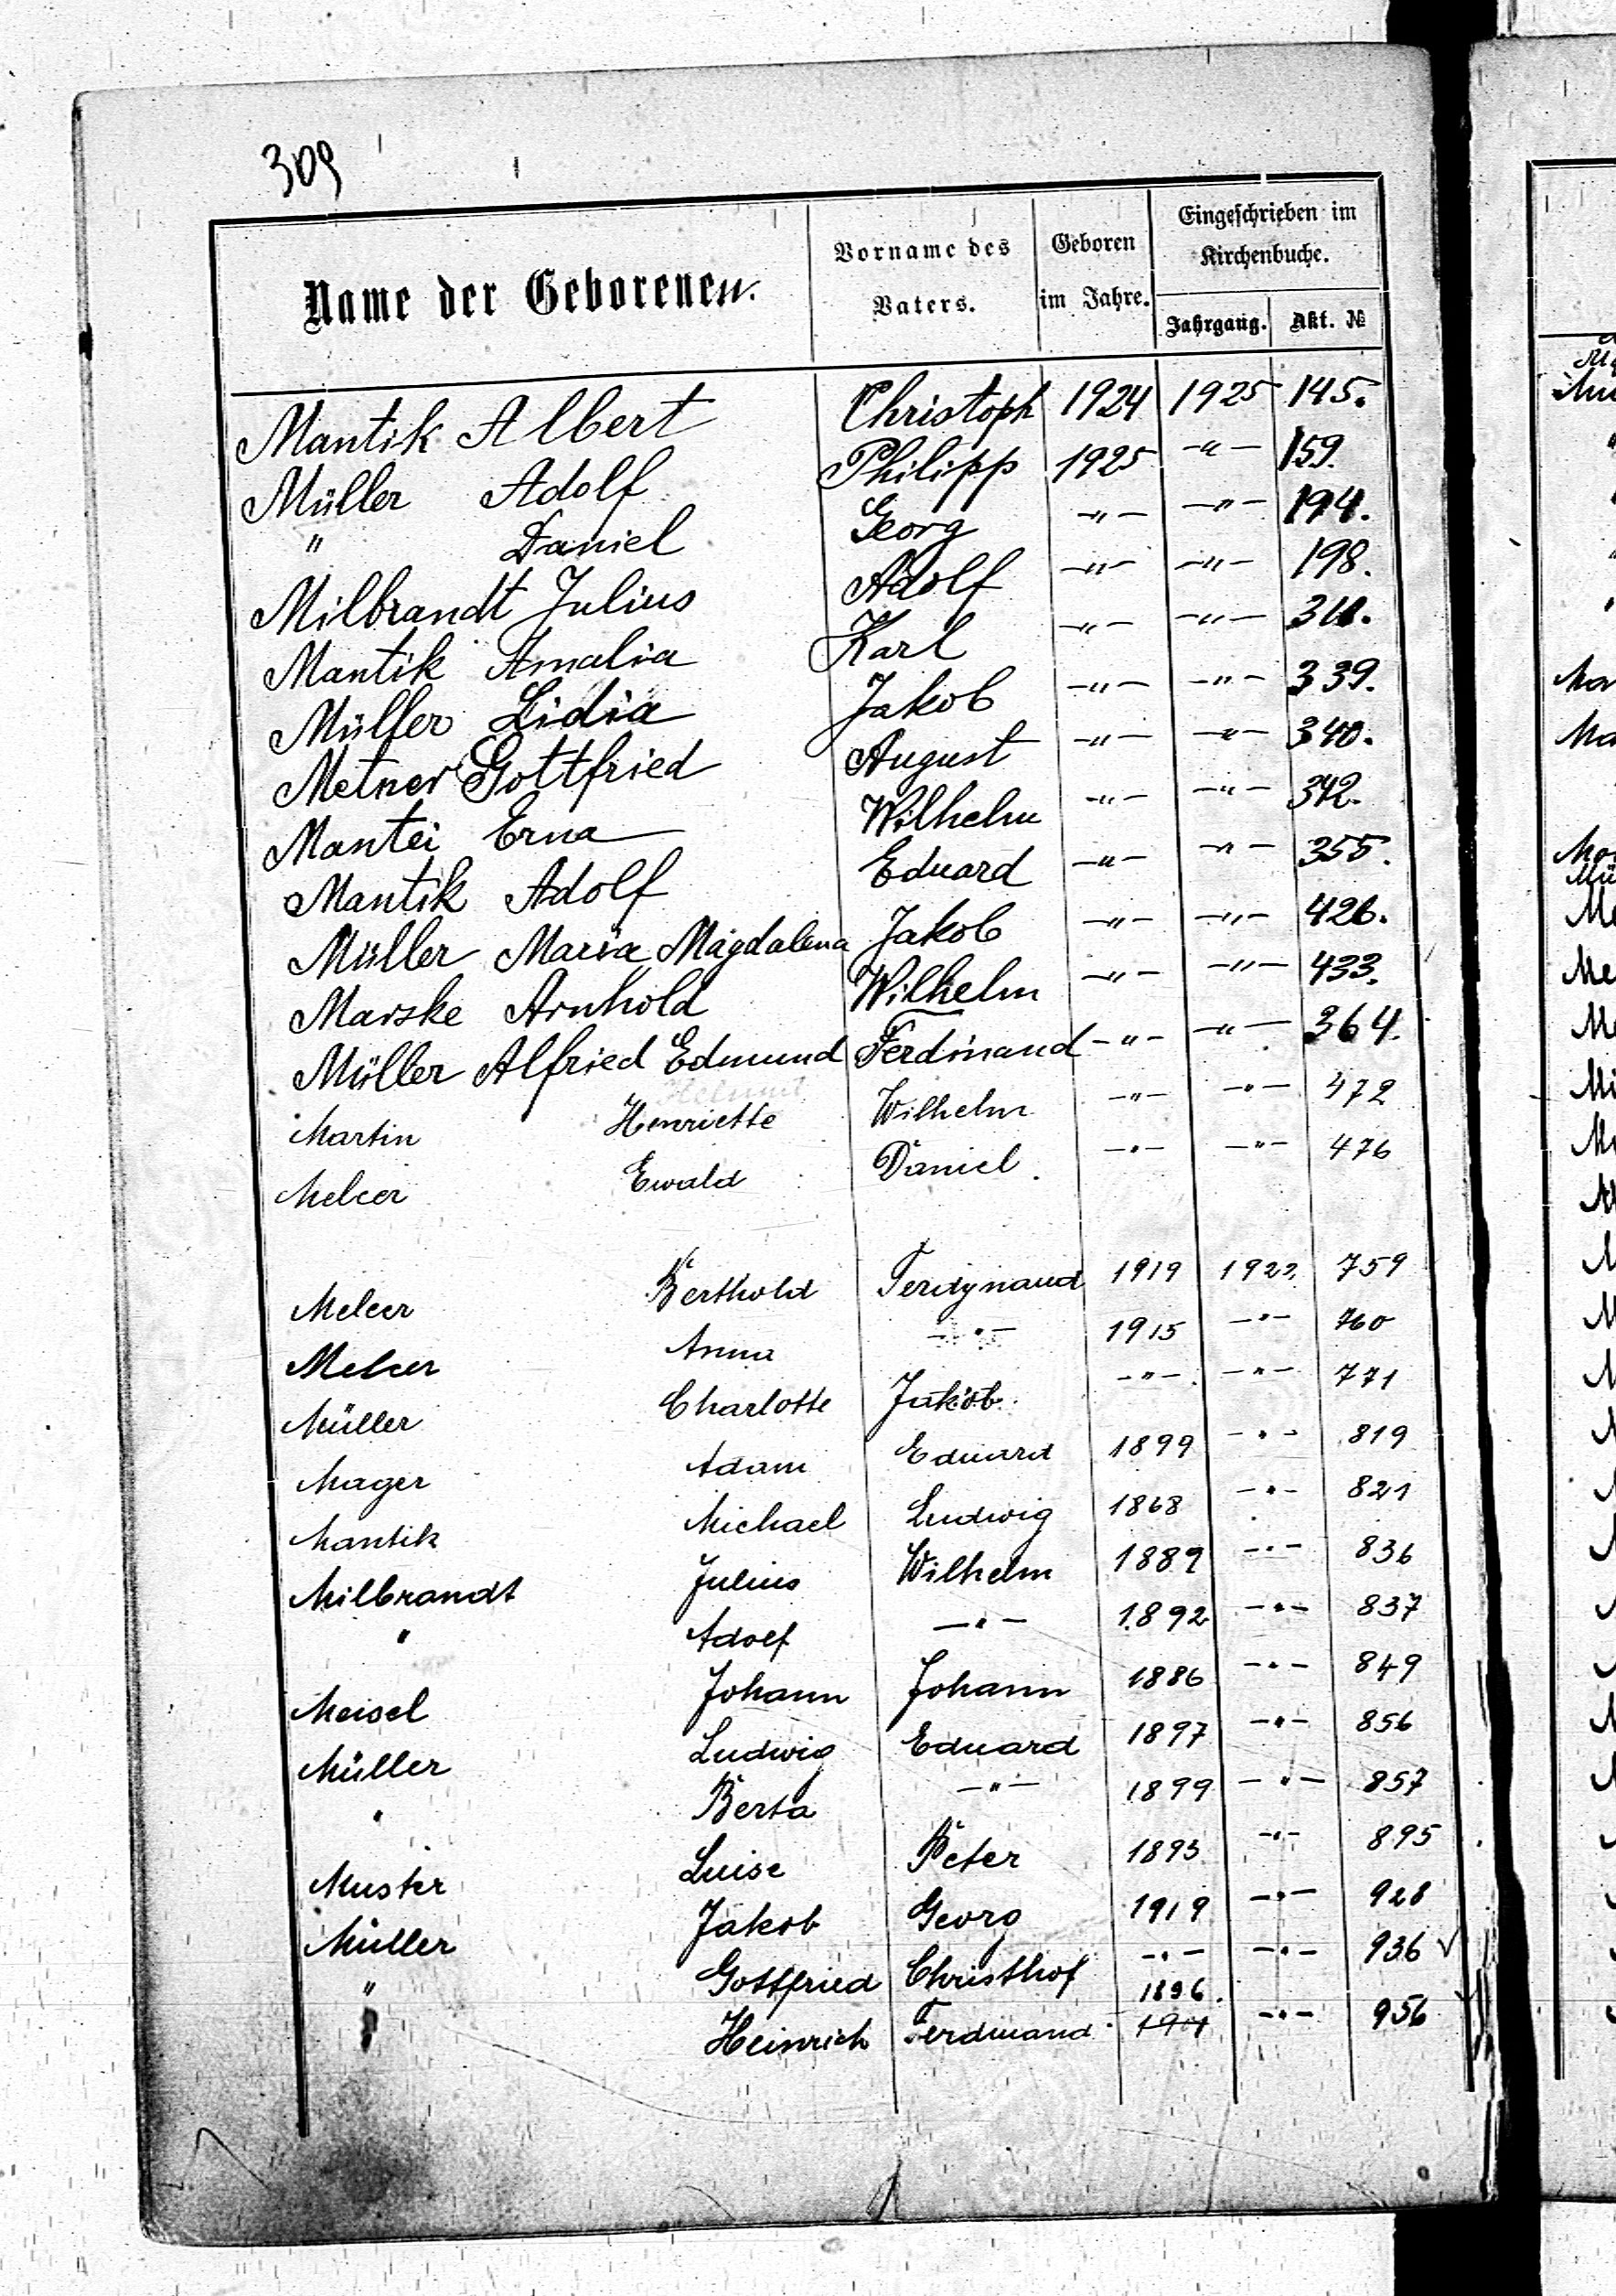 309
Name der Geborenen. Vorname des Vaters. Geboren im Jahre. Eingeschrieben im Kirchenbuche.
Jahrgang. Akt. №
Mantik Albert Christoph 1924 1925 145.
Müller Adolf Philipp 1925 -"- 159.
" Daniel Georg -"- -"- 194.
Milbrandt Julius Adolf -"- -"- 198.
Mantik Amalia Karl -"- -"-
Müller Lidia Jakob -"- -"- 339.
Metner Gottfried August -"- -"- 340.
Mantei Erna Wilhelm -"- -"- 342.
Mantik Adolf Eduard -"- -"- 355.
Müller Maria Magdalena Jakob -"- -"- 426.
Marske Arnhold Wilhelm -"- -"- 433.
Müller Alfried Edmund Ferdinand -"- -"- 364.
Helmut
Martin Henriette Wilhelm -"- -"- 472
Melcer Ewald Daniel -"- -"- 476
Melcer Berthold Ferdynand 1919 759
Melcer Anna -"- 1915 -"- 760
Müller Charlotte Jakob -"- -"- 771
Mager Adam Eduard 1899 -"- 819
Mantik Michael Ludwig 1868 -"- 821
Milbrandt Julius Wilhelm 1889 -"- 836
" Adolf -"- 1892 -"- 837
Meisel Johann Johann 1886 -"- 849
Müller Ludwig Eduard 1897 -"- 856
" Berta -"- 1899 -"- 857
Muster Luise Peter 1893 -"- 895
Müller Jakob Georg 1919 -"- 928
" Gottfried Christhof -"- -"- 936 √
1896.
" Heinrich Ferdinand -"- 956